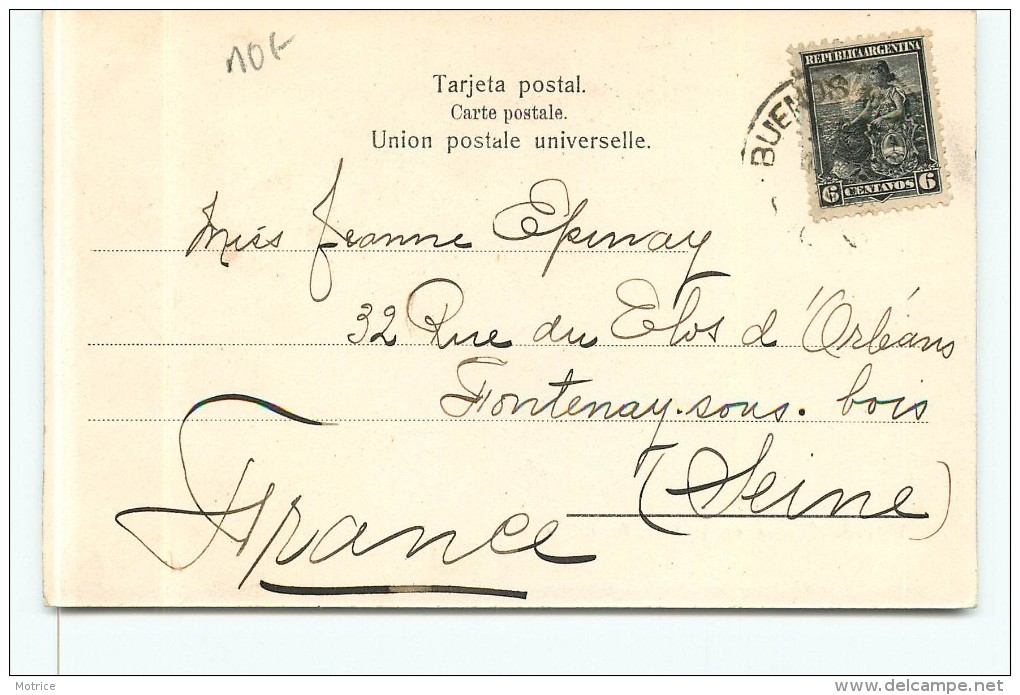 10F
Tarjeta postal.
Carte postale.
Union postale universelle.
REPUBLICA ARGENTINA
6 CENTAVOS 6
BUENOS
Miss Jeanne Epinay
32 Rue du Clos d'Orléans
Fontenay-sous-bois
(Seine)
France
Motrice
http://www.delcampe.net